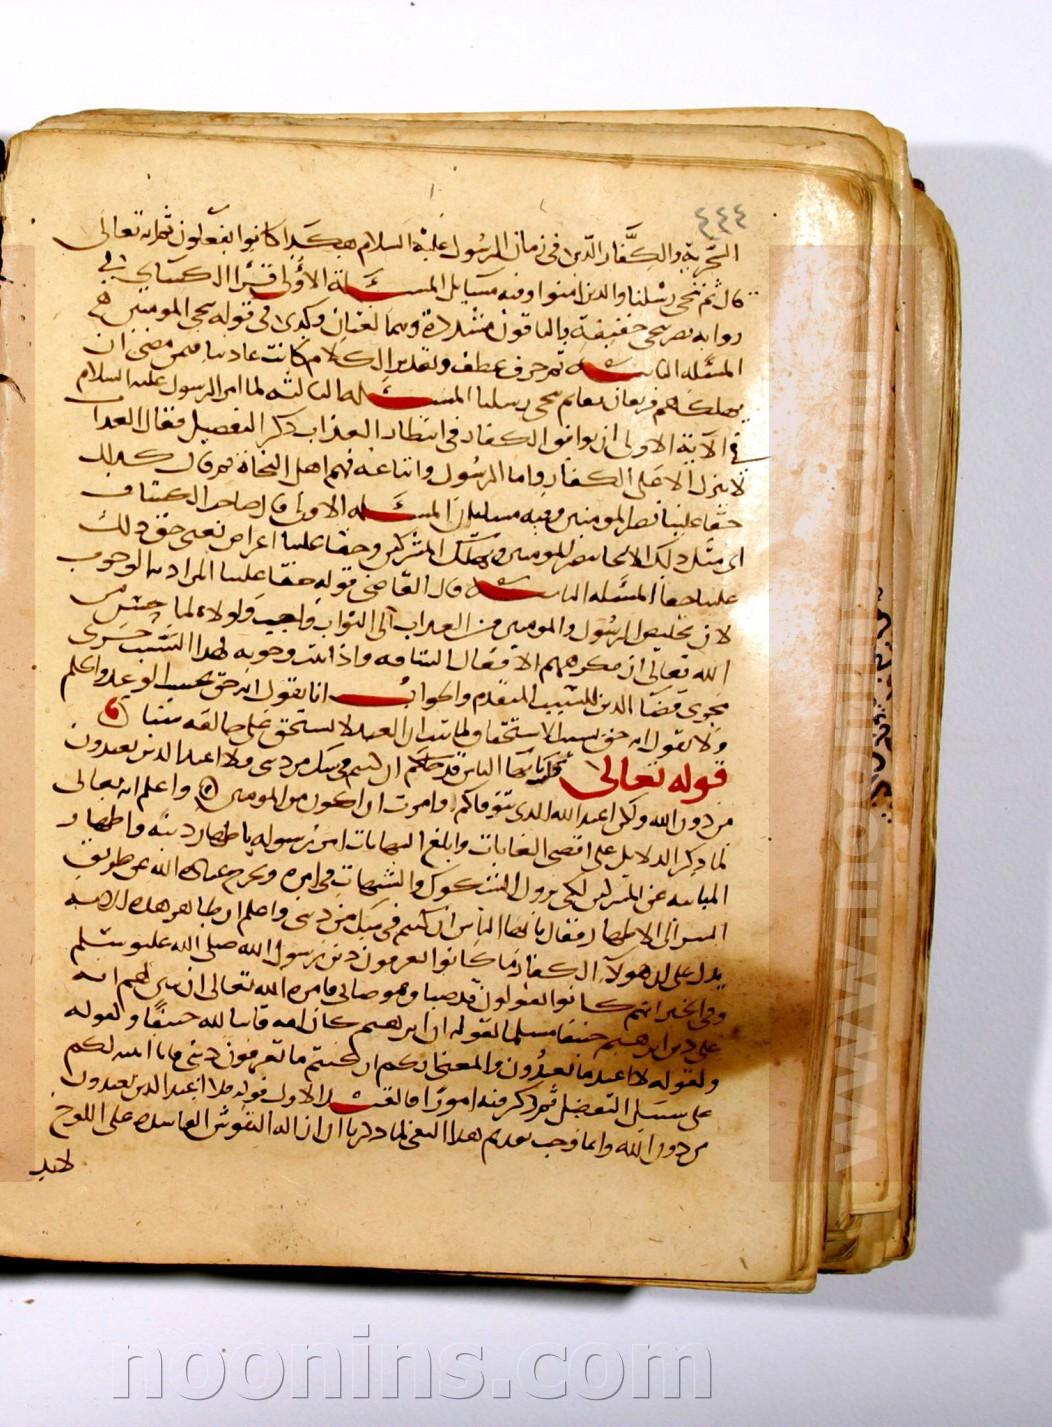 ٤٤٤
السخرية والكفار الذين في زمان الرسول عليه السلام هكذا كانوا يفعلون ثم انه تعالى
قال ثم ننجي رسلنا والذين امنوا وفيه مسايل المسئلة الاولى قرا الكسائي في
رواية نصير ننجي خفيفة والباقون مشددة وهما لغتان وكذى في قوله ننجي المومنين
المسئله الثانية ثم حرف عطف وتقدير الكلام كانت عادتنا فيمن مضى ان
نهلكهم سريعا ثم ننجي رسلنا المسئلة الثالثه لما امر الرسول عليه السلام
في الاية الاولى ان يوافق الكفار في انتظار العذاب ذكر التفصيل فقال العذاب
لا ينزل الا على الكفار واما الرسول واتباعه فهم اهل النجاة ثم قال كذلك
حقا علينا ننج المومنين وفيه مسئلتان المسئله الاولى قال صاحب الكشاف
اى مثل ذلك الانجا ننجي المومنين ونهلك المشركين وحقا علينا اعراض يعنى حق ذلك
علينا حقا المسئله الثانية قال القاضى قوله حقا علينا المراد به الوجوب
لان تخليص الرسول والمومنين من العذاب الى الثواب واجب ولولاه لما حسن من
الله تعالى ان يكرههم الافعال الشاقه واذا ثبت وجوبه لهذا السبب جرى
مجرى قضا الدين للسبب المتقدم والجواب انا نقول انه حق بحسب الوعد والحكم
ولا نقول انه حق بسبب الاستحقاق لما ثبت ان العبد لا يستحق على خالقه شيئا
قوله تعالى قل يا ايها الناس ان كنتم في شك من دينى فلا اعبد الذين تعبدون
من دون الله ولكن اعبد الله الذى يتوفاكم وامرت ان اكون من المومنين واعلم انه تعالى
لما ذكر الدلايل على اقصى الغايات وابلغ النهايات امر رسوله باظهار دينه واظهار
المباينه عن المشركين لكى يزول الشكوك والشبهات في امره ويخرج عبادة الله عن طريق
السر الى الاظهار فقال يا ايها الناس ان كنتم في شك من دينى واعلم ان ظاهر هذه الاية
يدل على ان هولاء الكفار ما كانوا يعرفون دين رسول الله صلى الله عليه وسلم
وفي الخبر انهم كانوا يقولون قد صبا وهو صابى فامره الله تعالى ان يبين لهم انه
على دين ابرهيم حنيفا مسلما لقوله ان ابرهيم كان امة قانتا لله حنيفا ولقوله
ولقوله لا اعبد ما تعبدون والمعنى انكم ان كنتم ما تعرفون دينى فانا ابينه لكم
على سبيل التفصيل ثم ذكر فيه امورا فالقيد الاول قوله فلا اعبد الذين تعبدون
من دون الله وانما وجب تقديم هذا النفى لما ذكرنا ان ازاله النقوش الفاسده على اللوح
لابد
noonins.com